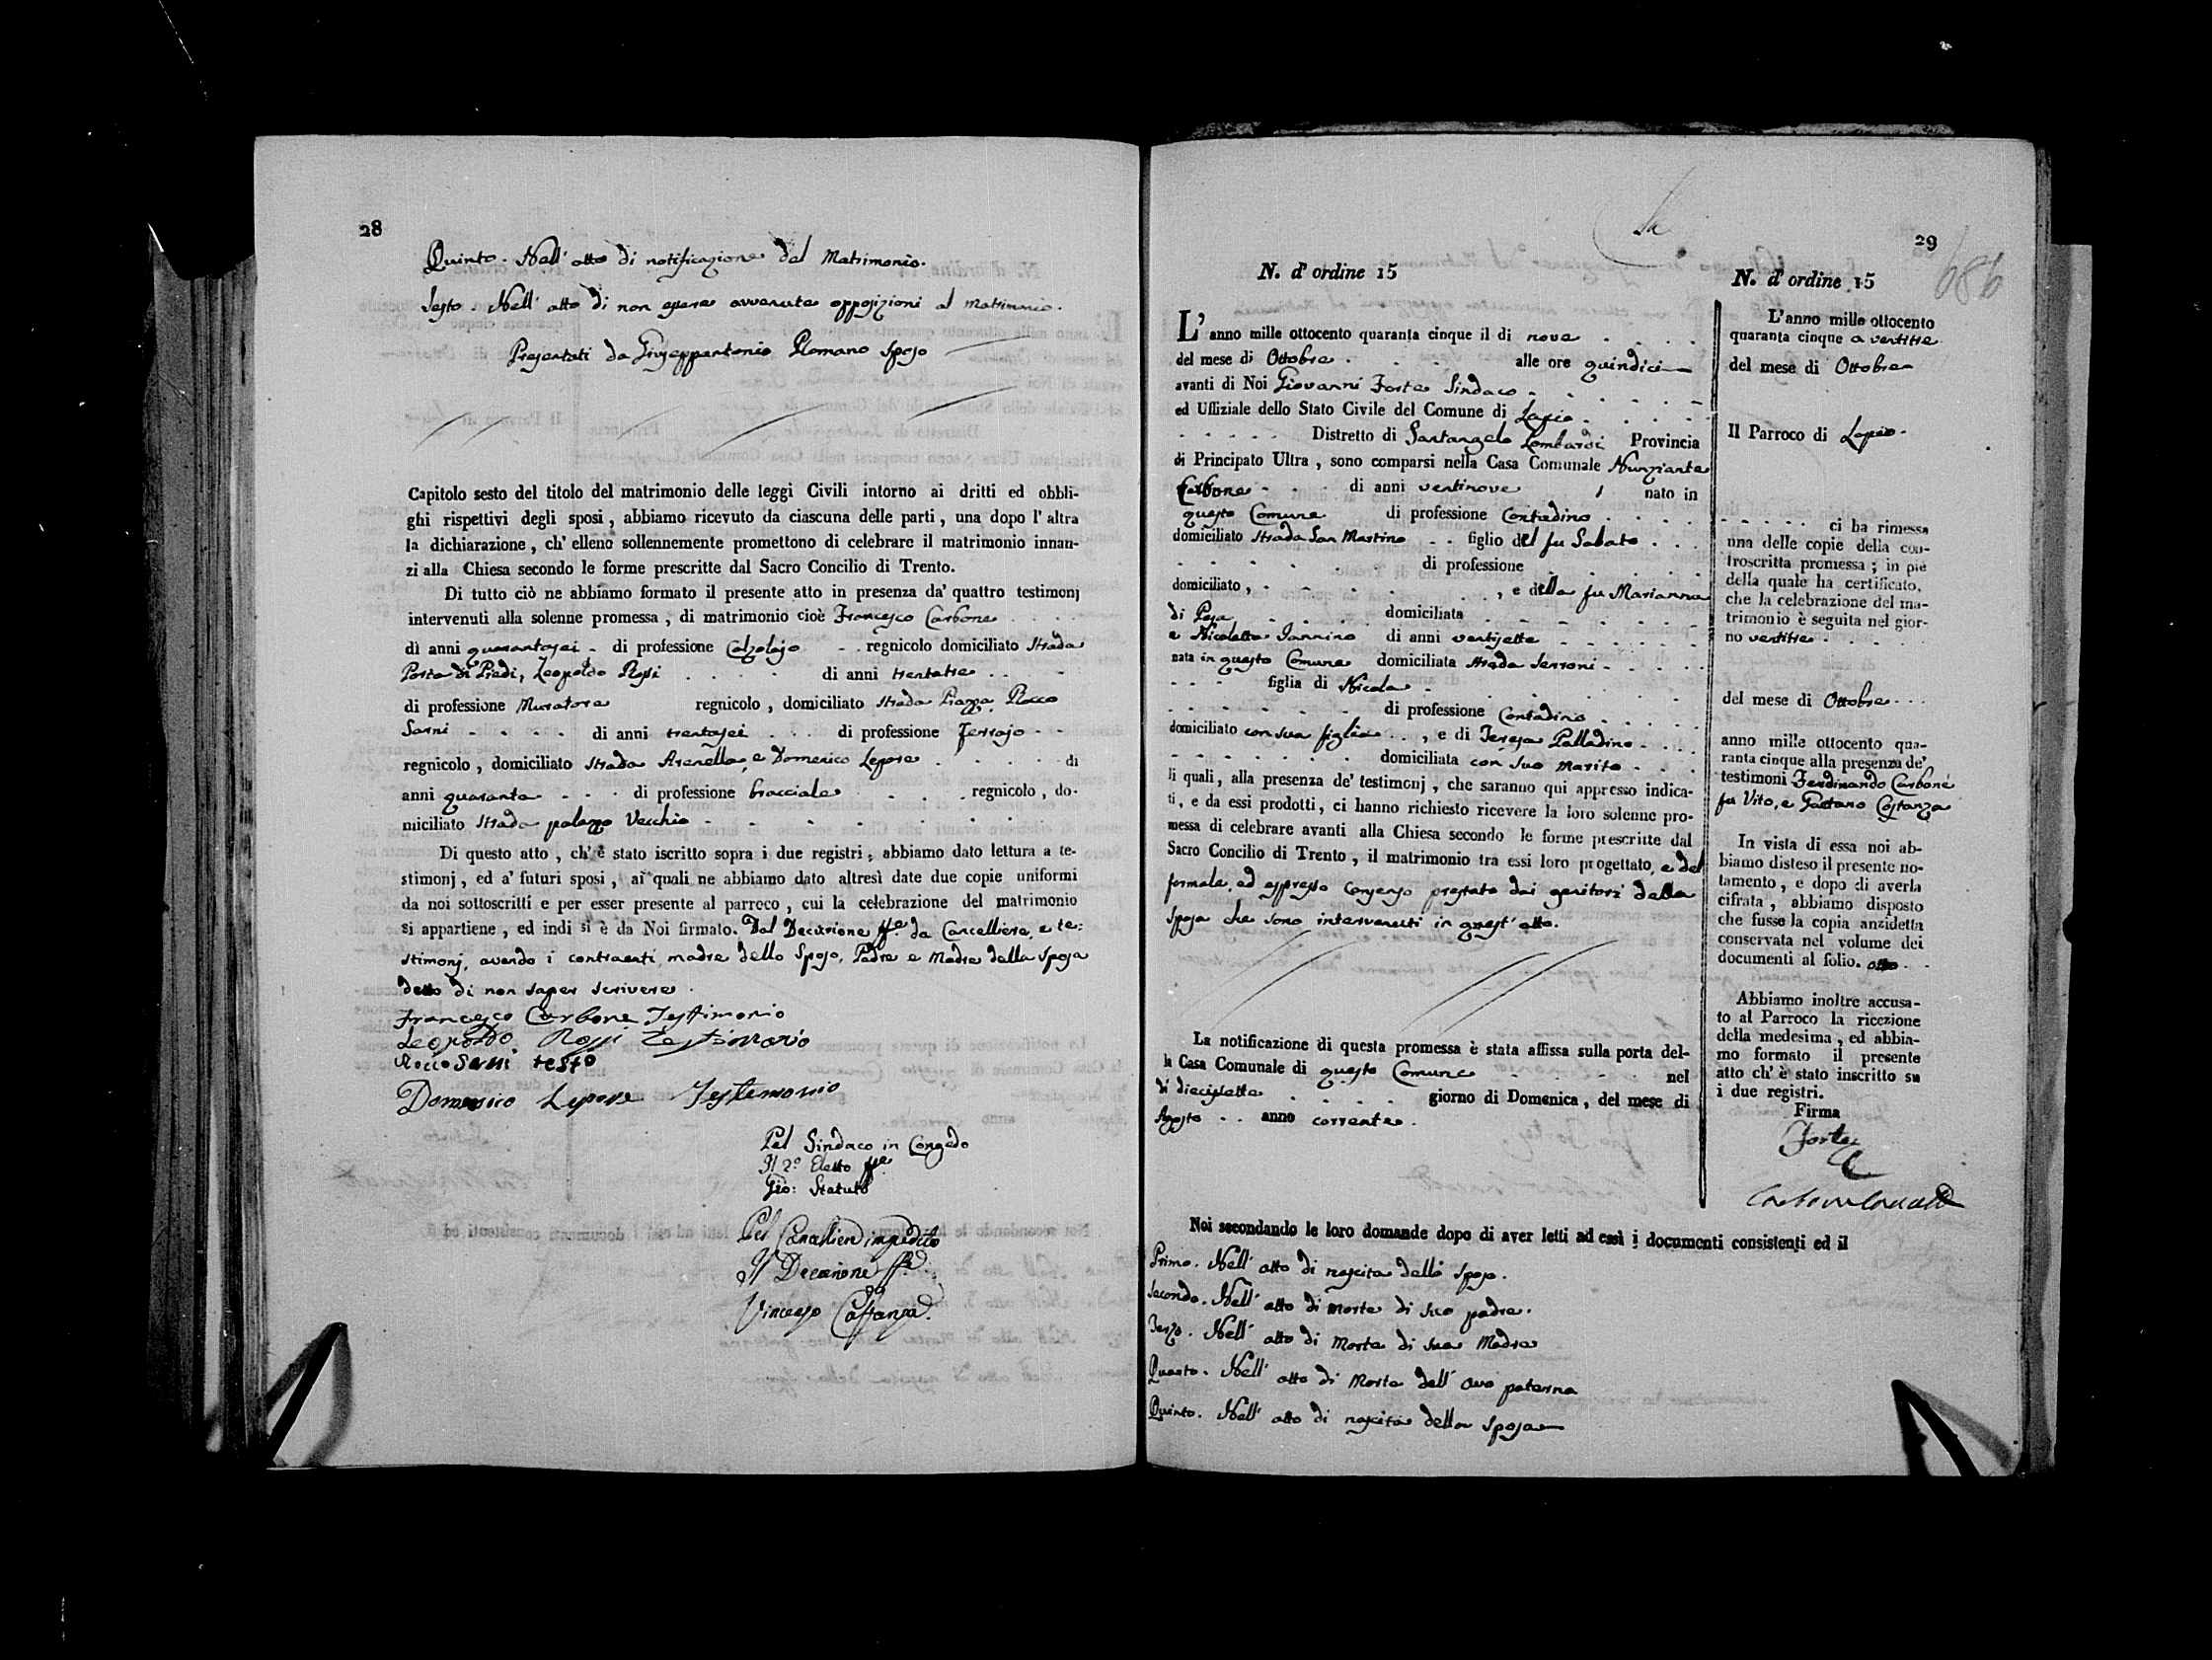 28
Quinto. Nell' atto di notificazione del Matrimonio.
Sesto. Nell' atto di non essere avvenute opposizioni al matrimonio.
Presentati da Giuseppantonio Romano Sposo
Capitolo sesto del titolo del matrimonio delle leggi Civili intorno ai dritti ed obbli-
ghi rispettivi degli sposi, abbiamo ricevuto da ciascuna delle parti, una dopo l' altra
la dichiarazione, ch' elleno sollennemente promettono di celebrare il matrimonio innan-
zi alla Chiesa secondo le forme prescritte dal Sacro Concilio di Trento.
Di tutto ciò ne abbiamo formato il presente atto in presenza da' quattro testimonj
intervenuti alla solenne promessa, di matrimonio cioè Francesco Carbone
di anni quarantasei - di professione Calzolajo - - regnicolo domiciliato Strada
Porta di Piedi, Leopoldo Rossi . . . . di anni trentatre . . -
di professione Muratore regnicolo, domiciliato Strada Piazza, Rocco
Sarni - - - - di anni trentasei . . . di professione Ferrajo - -
regnicolo, domiciliato Strada Arenella, e Domenico Lepore . . . . . di
anni quaranta - - - di professione bracciale . . . regnicolo, do-
miciliato Strada palazzo Vecchio - - . . . . .
Di questo atto, ch' è stato iscritto sopra i due registri, abbiamo dato lettura a te-
stimonj, ed a' futuri sposi, ai quali ne abbiamo dato altresì date due copie uniformi
da noi sottoscritti e per esser presente al parroco, cui la celebrazione del matrimonio
si appartiene, ed indi si è da Noi firmato. Dal Decurione ff.e da Cancelliere, e te:
stimonj, avendo i contraenti, madre dello Sposo, Padre e Madre della Sposa
detto di non saper scrivere.
Francesco Carbone Testimonio
Leopoldo Rossi Testimonio
Rocco Sarni testo
Domenico Lepore Testemonio
Pel Sindaco in Congedo
Il 2.o Eletto ff.e
Gio: Statuto
Pel Cancelliere impedito
Il Decurione ff.e
Vincenzo Costanza
29
686
N. d' ordine 15
L' anno mille ottocento quaranta cinque il di nove . . . .
del mese di Ottobre . . . alle ore quindici
avanti di Noi Giovanni Forte Sindaco . . . . . .
ed Uffiziale dello Stato Civile del Comune di Lapio . . . .
. . . . . Distretto di Santangelo Lombardi Provincia
di Principato Ultra, sono comparsi nella Casa Comunale Nunziante
Carbone - - - di anni ventinove nato in
questo Comune di professione Contadino . . . .
domiciliato Strada San Martino - - figlio del fu Sabato . . .
. . . . . di professione . . . .
domiciliato, . . . . . . , e della fu Marianna
di Pesa . . . . domiciliata . . . . .
e Nicoletta Iannino di anni ventisette - - - - -
nata in questo Comune domiciliata strada Serroni - - . .
- - - figlia di Nicola - . . . . .
. . . . . . di professione Contadino . . . .
domiciliato con sua figlia . . , e di Teresa Palladino - . . .
. . . . . . domiciliata con suo marito . . .
li quali, alla presenza de' testimonj, che saranno qui appresso indica-
ti, e da essi prodotti, ci hanno richiesto ricevere la loro solenne pro-
messa di celebrare avanti alla Chiesa secondo le forme prescritte dal
Sacro Concilio di Trento, il matrimonio tra essi loro progettato, e del
formale, ed espresso consenso prestato dai genitori della
Sposa che sono intervenuti in quest' atto.
La notificazione di questa promessa è stata affissa sulla porta del-
la Casa Comunale di questo Comune - . . . nel
dì diecisette . . . . giorno di Domenica, del mese di
Agosto - . anno corrente.
Noi secondando le loro domande dopo di aver letti ad essi i documenti consistenti ed il
Primo. Nell' atto di nascita dello sposo.
Secondo. Nell' atto di morte di suo padre.
Terzo. Nell' atto di Morte di sua Madre
Quarto. Nell' atto di Morte dell' Avo paterna
Quinto. Nell' atto di nascita della Sposa
N. d' ordine 15
L'anno mille ottocento
quaranta cinque a ventitre
del mese di Ottobre
Il Parroco di Lapio.
. . . . . . ci ha rimessa
una delle copie della con-
troscritta promessa; in piè
della quale ha certificato,
che la celebrazione del ma-
trimonio è seguita nel gior-
no ventitre . . .
del mese di Ottobre - - -
anno mille ottocento qua-
ranta cinque alla presenza de'
testimoni Ferdinando Carbone
fu Vito, e Gaetano Costanza
In vista di essa noi ab-
biamo disteso il presente no-
tamento, e dopo di averla
cifrata, abbiamo disposto
che fusse la copia anzidetta
conservata nel volume dei
documenti al folio. otto . .
Abbiamo inoltre accusa-
to al Parroco la ricezione
della medesima, ed abbia-
mo formato il presente
atto ch' è stato inscritto su
i due registri.
Firma
Forte